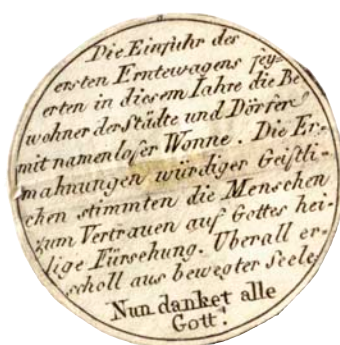 Die Einfuhr der
ersten Erntewagens fey-
erten in diesem Jahre die Be
wohner der Städte und Dörfer
mit namenloser Wonne. Die Er-
mahnungen würdiger Geistli-
chen stimmten die Menschen
zum Vertrauen auf Gottes hei-
lige Fürsehung. Uberall er-
scholl aus bewegter Seele
Nun danket alle
Gott!